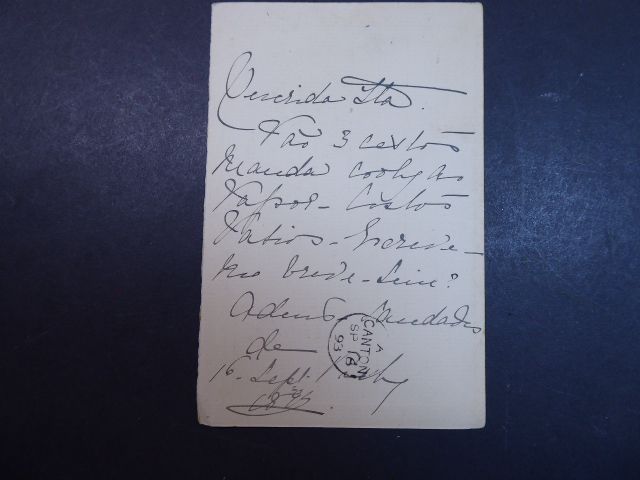 Querida Ita.
Vão 3 cestos
Manda cooly ao
Vapor - Cestos
Vasios - Escreve-
me breve - Sim?
Adeus - saudades
de
16 - Sept.
1893.
A
CANTON
SP 16
93